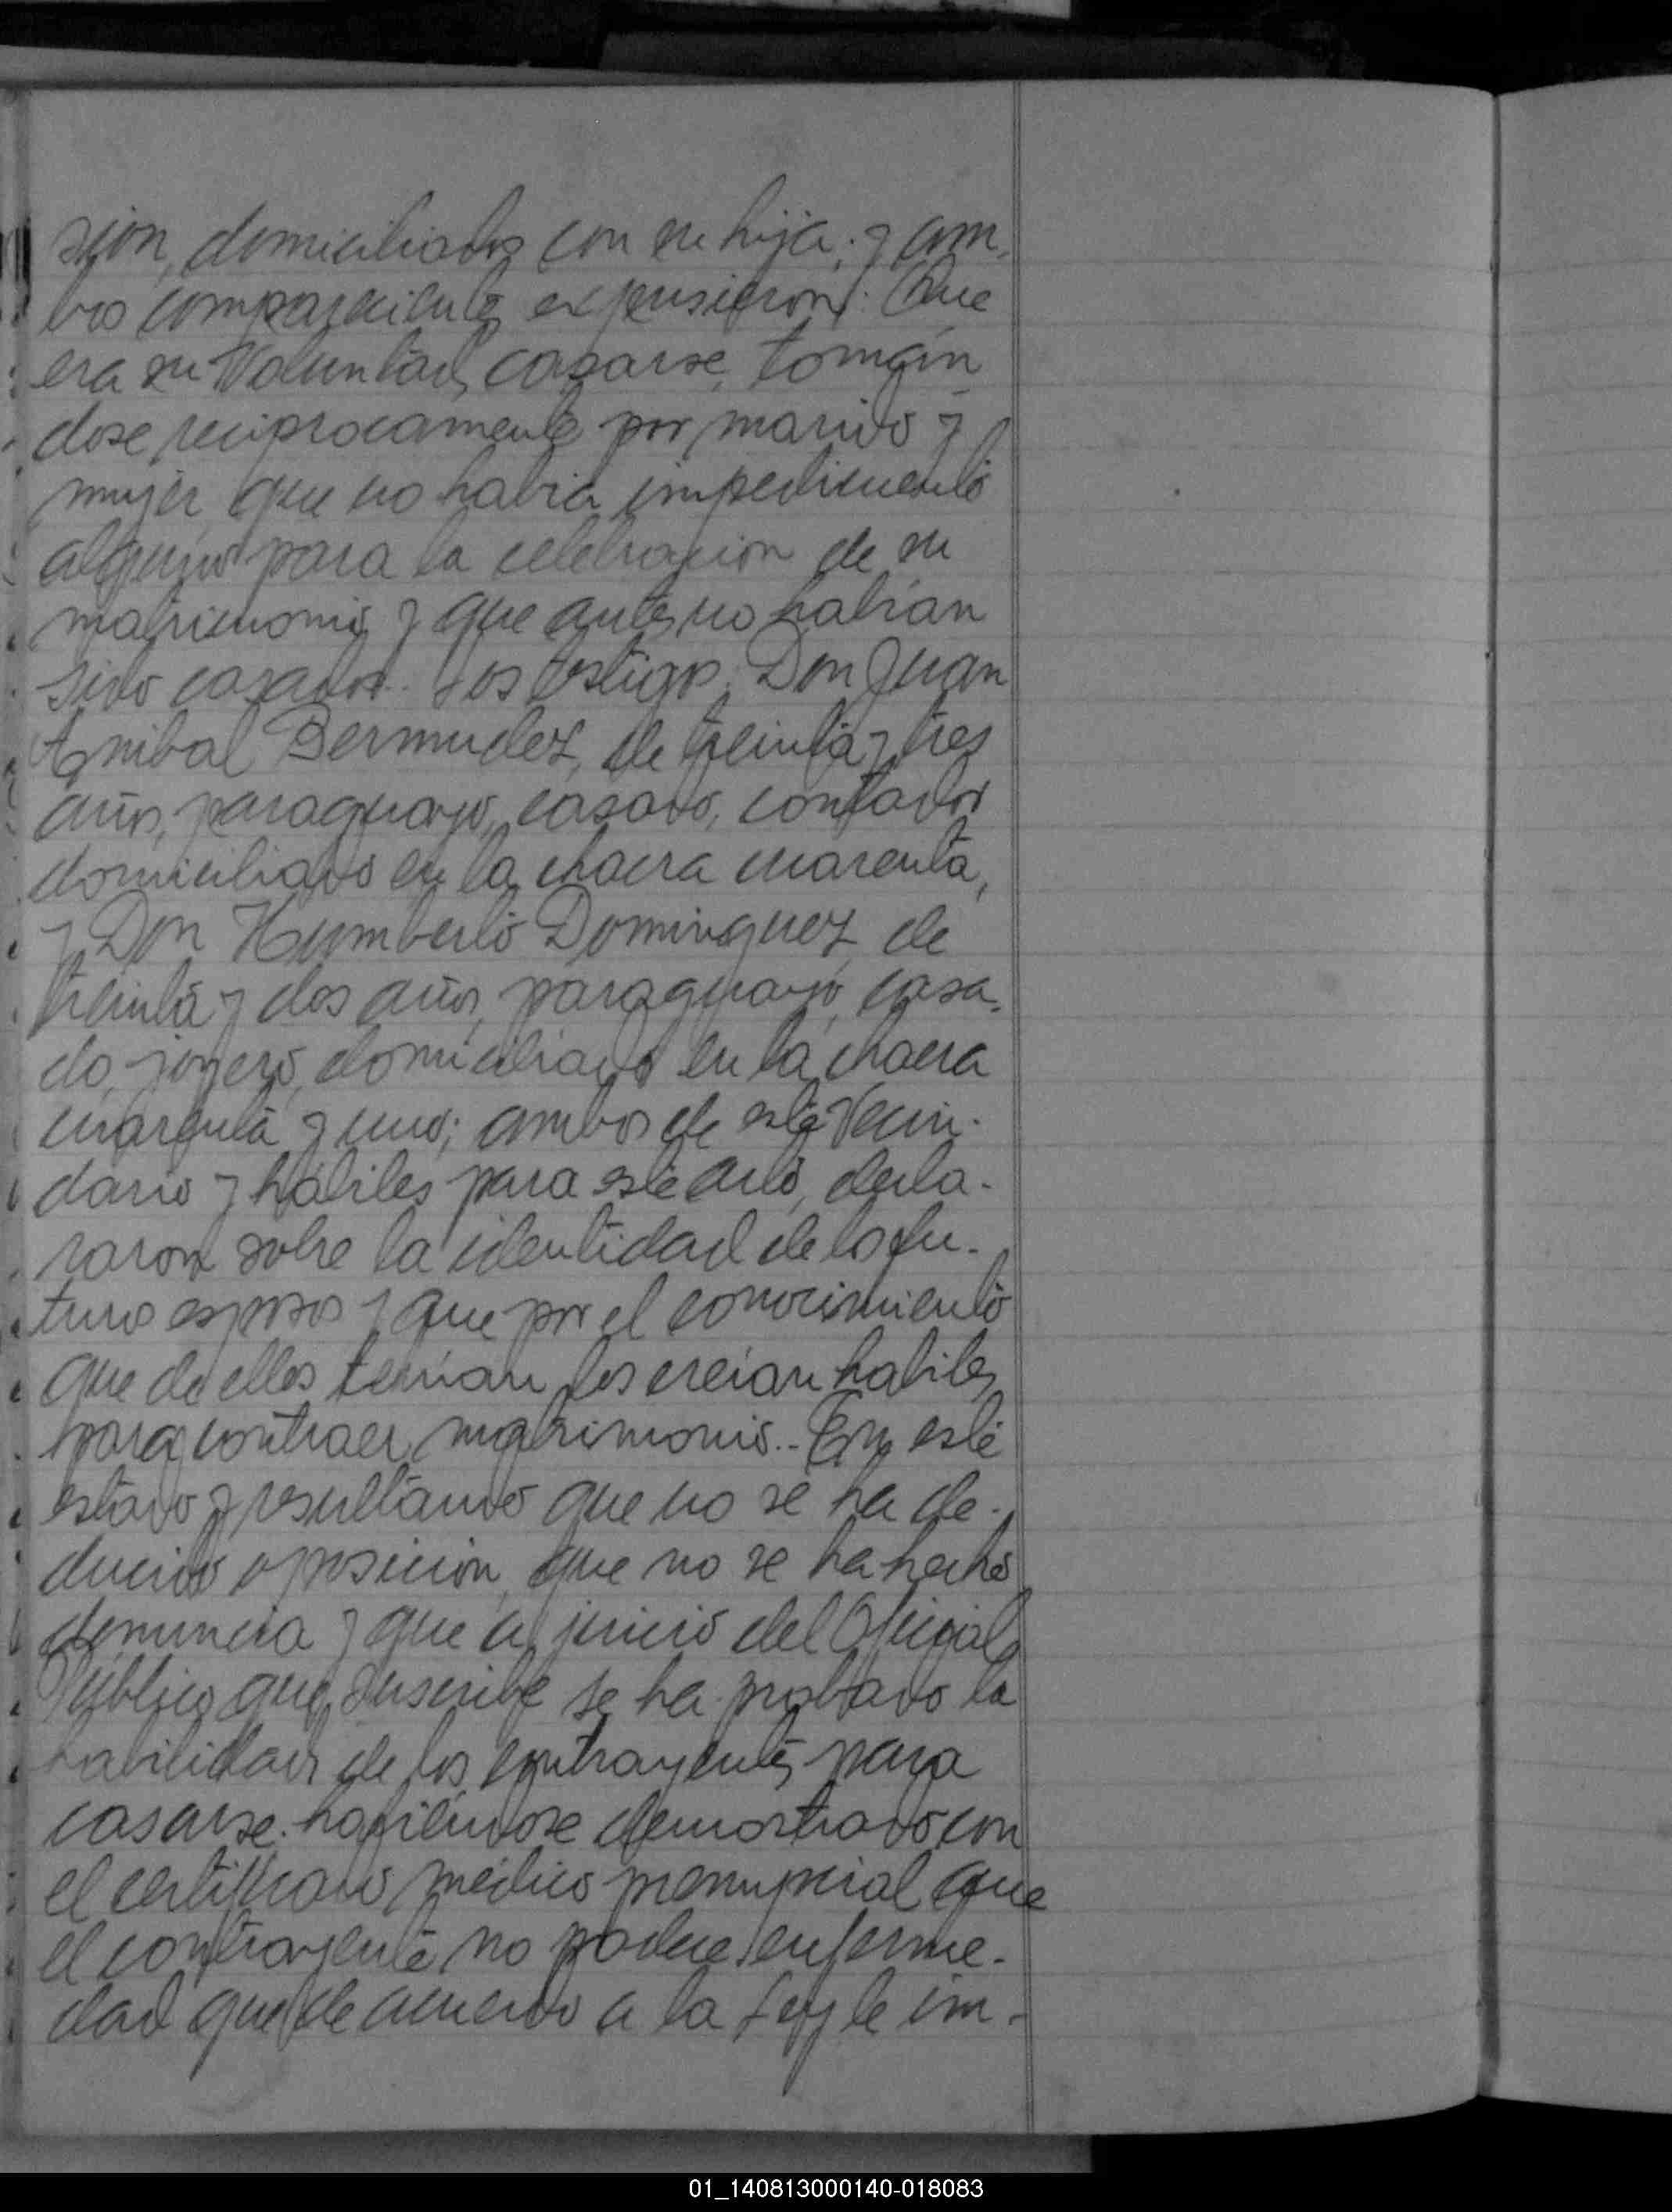 sion, domiciliados con su hija; y am-
bos comparecientes expusieron: Que
era su Voluntad casarse, tomán
dose reciprocamente por marido y
mujer, que no habia impedimento
alguno para la celebracion de su
matrimonio y que antes no habian
sido casados. Los testigos; Don Juan
Anibal Bermudez, de treinta y tres
años, paraguayo, casado, contador
domiciliado en la chacra cuarenta,
y Don Humberto Dominguez, de
treinta y dos años, paraguayo, casa-
do, joyero, domiciliado en la chacra
cuarenta y uno; ambos de este Vecin-
dario y hábiles para este acto, decla-
raron sobre la identidad de los fu-
turos esposos y que por el conocimiento
que de ellos tenian los creian habiles
para contraer matrimonio.- En este
estado y resultando que no se ha de-
ducido oposicion, que no se ha hecho
denuncia y que a juicio del Oficial
Público que suscribe se ha probado la
habilidad de los contrayentes para
casarse. habiéndose demostrado con
el certificado médico prenupcial que
el contrayente no padece enferme-
dad que de acuerdo a la Ley le im-
01_140813000140-018083